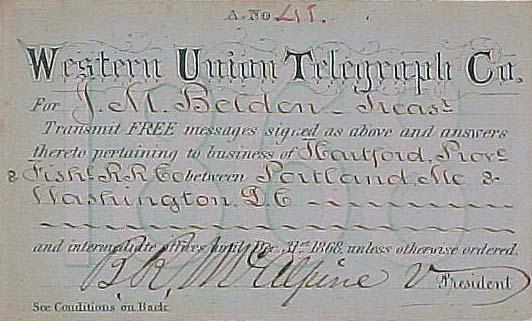 A. No 41.
Western Union Telegraph Co.
For J. M. Belden - Treasr
Transmit FREE messages signed as above and answers
thereto pertaining to business of Hartford, Prove
& Fishl R.R. Co between Portland, Me &
Washington, D.C
and intermediate offices until Dec. 31st 1868, unless otherwise ordered.
B. R. McAlpine V President
See Conditions on Back
1868